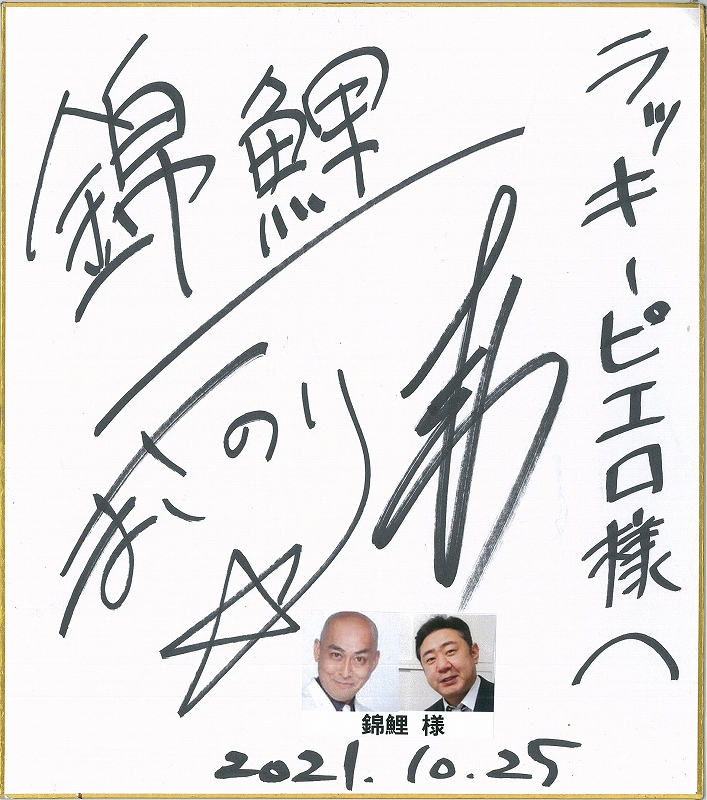 ラッキーピエロ様へ
錦鯉
まさのり
錦鯉 様
2021.10.25